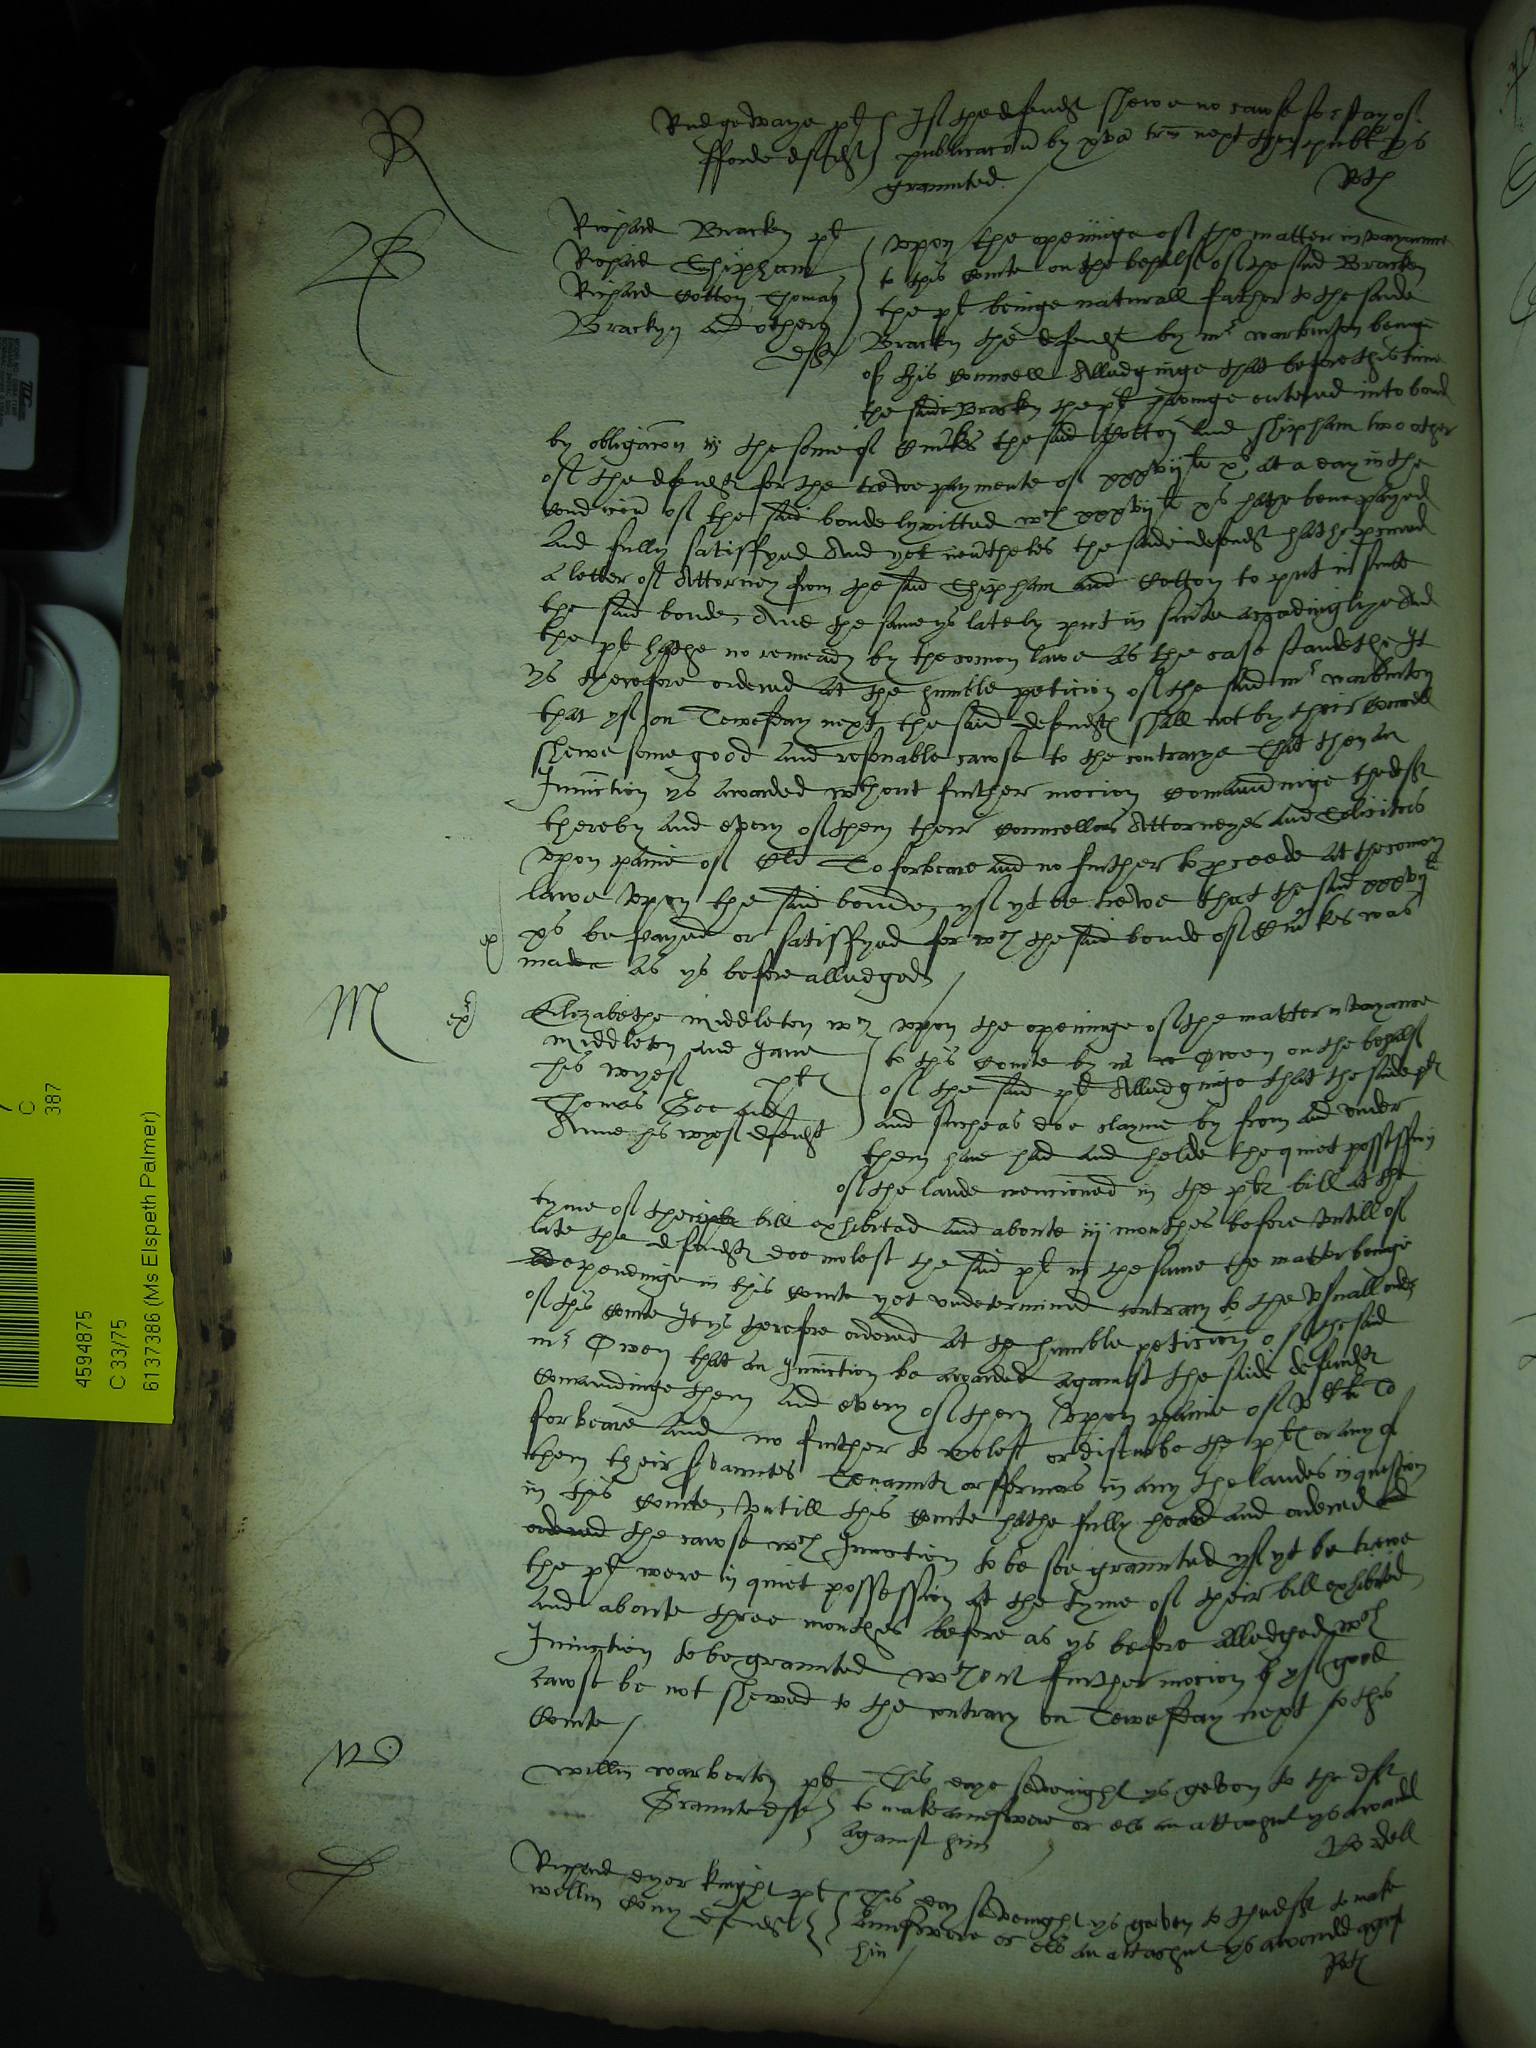 R
Rudgedwaye pl If the defendt shewe no cawse for stay of
fforde defendt publicacon by xva trin next then publi ys
graunted
Richard Bracken pl
Richard Chipham
Richard Cotton Thomas
Brackyn and others
deftes
Vpon the openinge of the matter in varyaunce
to this Courte on the behalf of the said Bracken
the pl beinge naturall father to the saide
Bracken the defendt by mr warburton beinge
of his Councell Alledginge that before this time
the saide Bracken the pl havinge entered into bond
by obligacon in the some of the said Cotton and Shipham two other
of the defendts for the trewe paymente of xxxvij li xs at a day in the
condicon of the said bonde lymitted wch xxxvij li xs hathe bene payed
and fully satisffyed And yet neverthelesse the saide defendt hathe procured
a letter of Attorney from the said Chipham and Cotton to put in sute
the said bonde, And the same ys lately put in suite accordinglye And
the pl hathe no remeady by the comon lawe as the case standethe It
ys therefore ordered at the humble peticion of the said mr warburton
that yf on Tewesday next the said defendts shall not by their Councell
shewe some good and resonable cawse to the contrarye That then an
Iniunction ys awarded wthout further mocion Comaundinge the deftes
thereby and every of them their Councellors Attorneyes and Solicitors
vpon paine of Cli To forbeare and no further to proceede at the comon
lawe vpon the said bonde, yf yt be trewe that the said xxxvij li
xs be payed or satisffyed for wch the said bonde of was
made as ys before alledged
M
ex
Elizabethe Middleton wm
Middleton and Jane
his wyef pl
Thomas Gee and
Anne his wyef defendts
vpon the openinge of the matter in varyaunce
to this Courte by mr Owen on the behalf
of the said pl Alledginge that the saide pl
and suche as doe clayme by from and vnder
them have had and helde the quiet possession
of the lande mencioned in the pls bill at the
tyme of their bill exhibited and aboute iij monthes before vntill of
late the defendts doe molest the said pl in the same the matter beinge
dependinge in this Courte yet vndetermined contrary to the vsuall order
of this Courte It ys therefore ordered at the humble peticion of the said
mr Owen that an Iniunction be awarded against the saide defendts
Comaundinge them and every of them vpon paine of Cli To
forbeare and no further to molest or disturbe the pl or any of
them their servauntes Tenaunts or ffermors in any the landes in question
in this Courte, vntill this Courte hathe fully heard and ordered
the cawse wch Iniunction to be soe graunted yf yt be trewe
the pl were in quiet possession at the tyme of their bill exhibited
and aboute three monthes before as ys before alledged wch
Iniunction to be graunted wthout further mocion yf good
cawse be not shewed to the contrary on Tewesday next to this
Courte
willm warberton pl
Graunte deft
This daye sevenight ys geven to the deft
to make aunswere or els an attachmt ys awarded
against him
Richard dyer knight pl
willm Cony defendt
This day sevenight ys geven to the deft to make
Aunswere or els an attachmt ys awarded against
him
C
387
4594875
C 33/75
6137386 (Ms Elspeth Palmer)